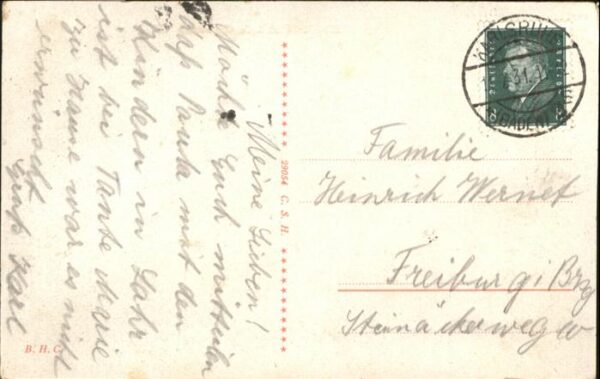 Meine Lieben!
Möchte Euch mitteilen
daß Paula mit den
Kindern in Lahr
ist bei Tante Marie
zu Hause war es nicht
erwünscht
Gruß Karl
B. H. C.
29054 G. S. H.
KARLSRUHE
31.
(BADEN)
Familie
Heinrich Wernet
Freiburg i Brg
Steinäckerweg